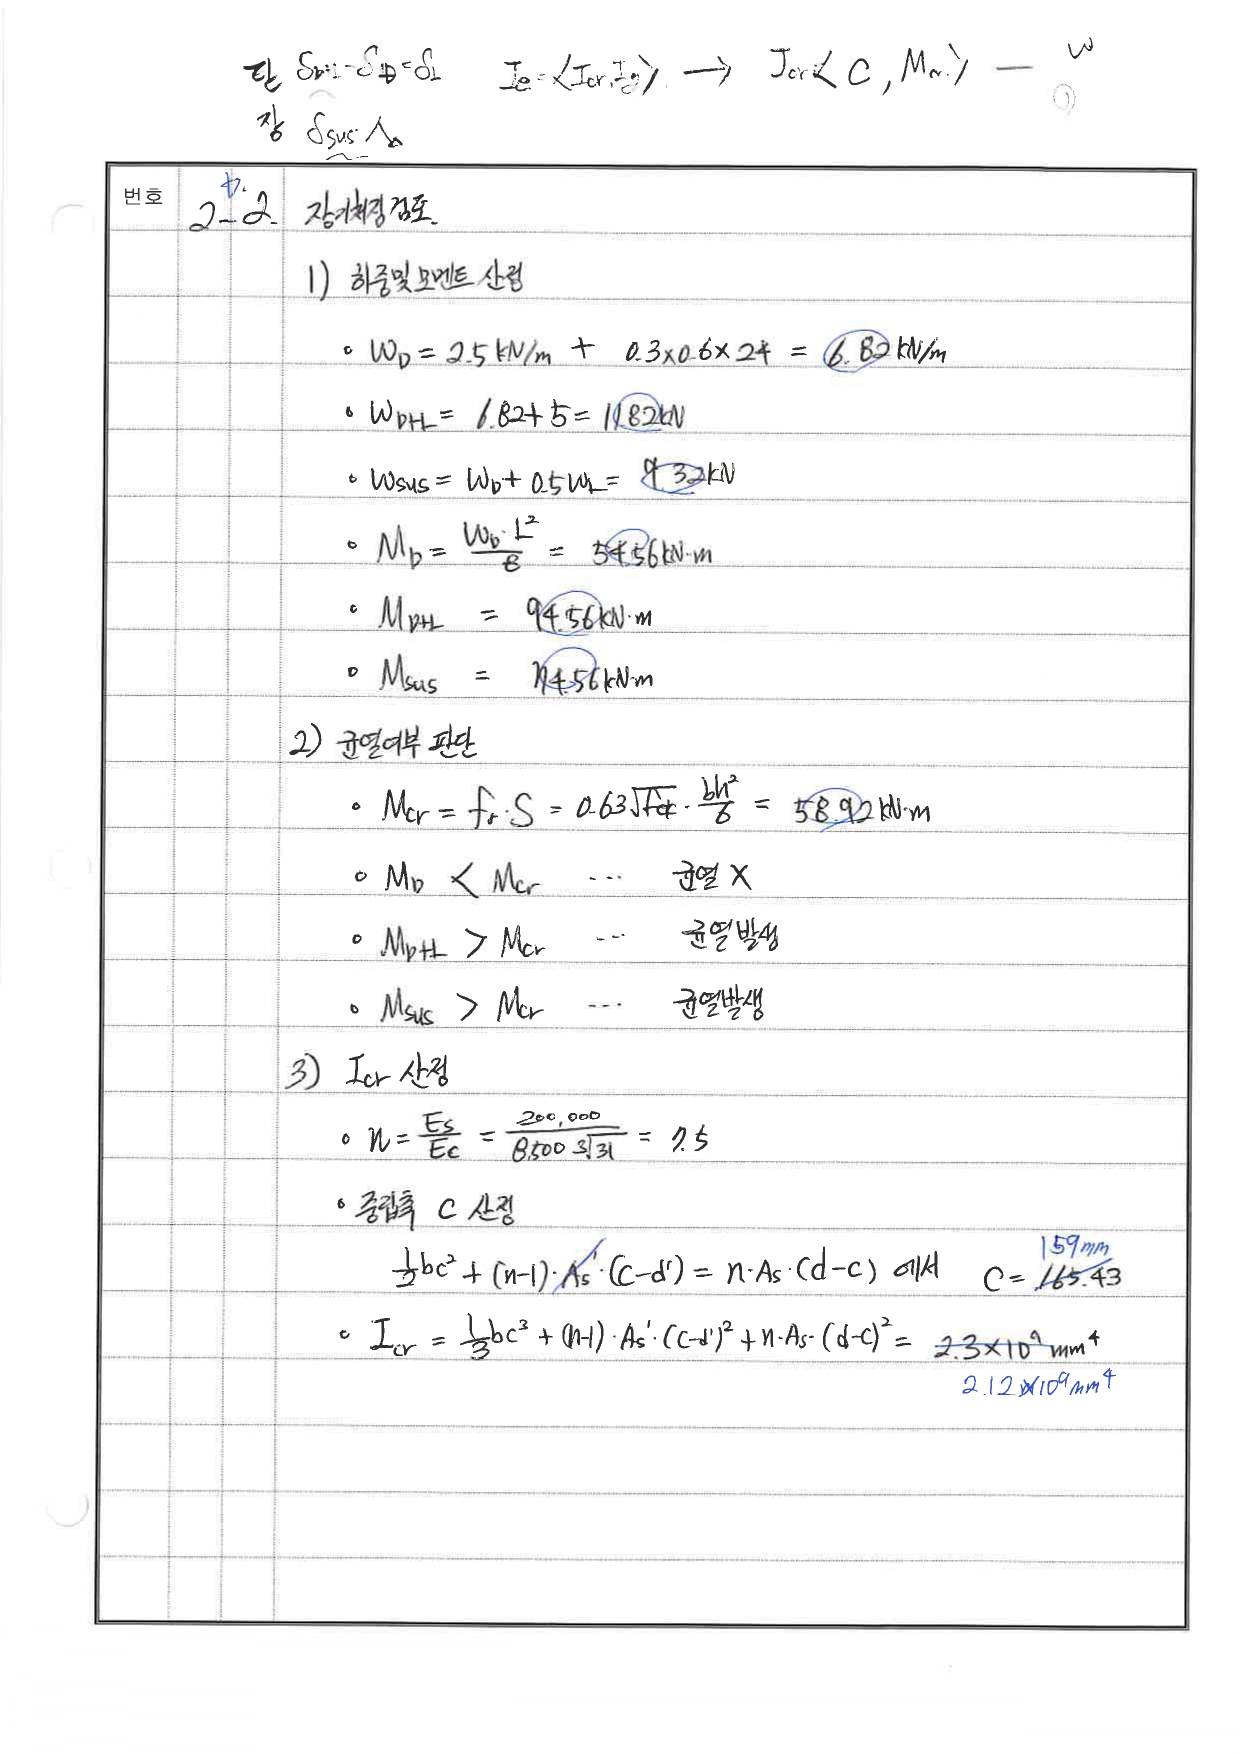 단 δD+L-δD=δL Ie=<Icr, Ig> → Icr<C, Mn> — W
장 δsus·λ
번호 2-2. 장기처짐검토.
1) 하중및모멘트 산정
∘ WD = 2.5 kN/m + 0.3×0.6×24 = 6.82 kN/m
∘ WD+L = 6.82+5 = 11.82kN
∘ Wsus = WD+ 0.5WL = 9.32kN
∘ MD = WD·L²/8 = 54.56kN·m
∘ MD+L = 94.56kN·m
∘ Msus = 74.56kN·m
2) 균열여부 판단
∘ Mcr = fr·S = 0.63√fck · bh²/6 = 58.92kN·m
∘ MD < Mcr ... 균열 X
∘ MD+L > Mcr ... 균열발생
∘ Msus > Mcr ... 균열발생
3) Icr 산정
∘ n = Es/Ec = 200,000/8,500 ∛31 = 7.5
∘ 중립축 C 산정
159mm
½bc² + (n-1)·As'·(C-d') = n·As·(d-c) 에서 C = 165.43
∘ Icr = ⅓bc³ + (n-1)·As'·(c-d')² + n·As·(d-c)² = 2.3×10⁹ mm⁴
2.12×10⁹mm⁴